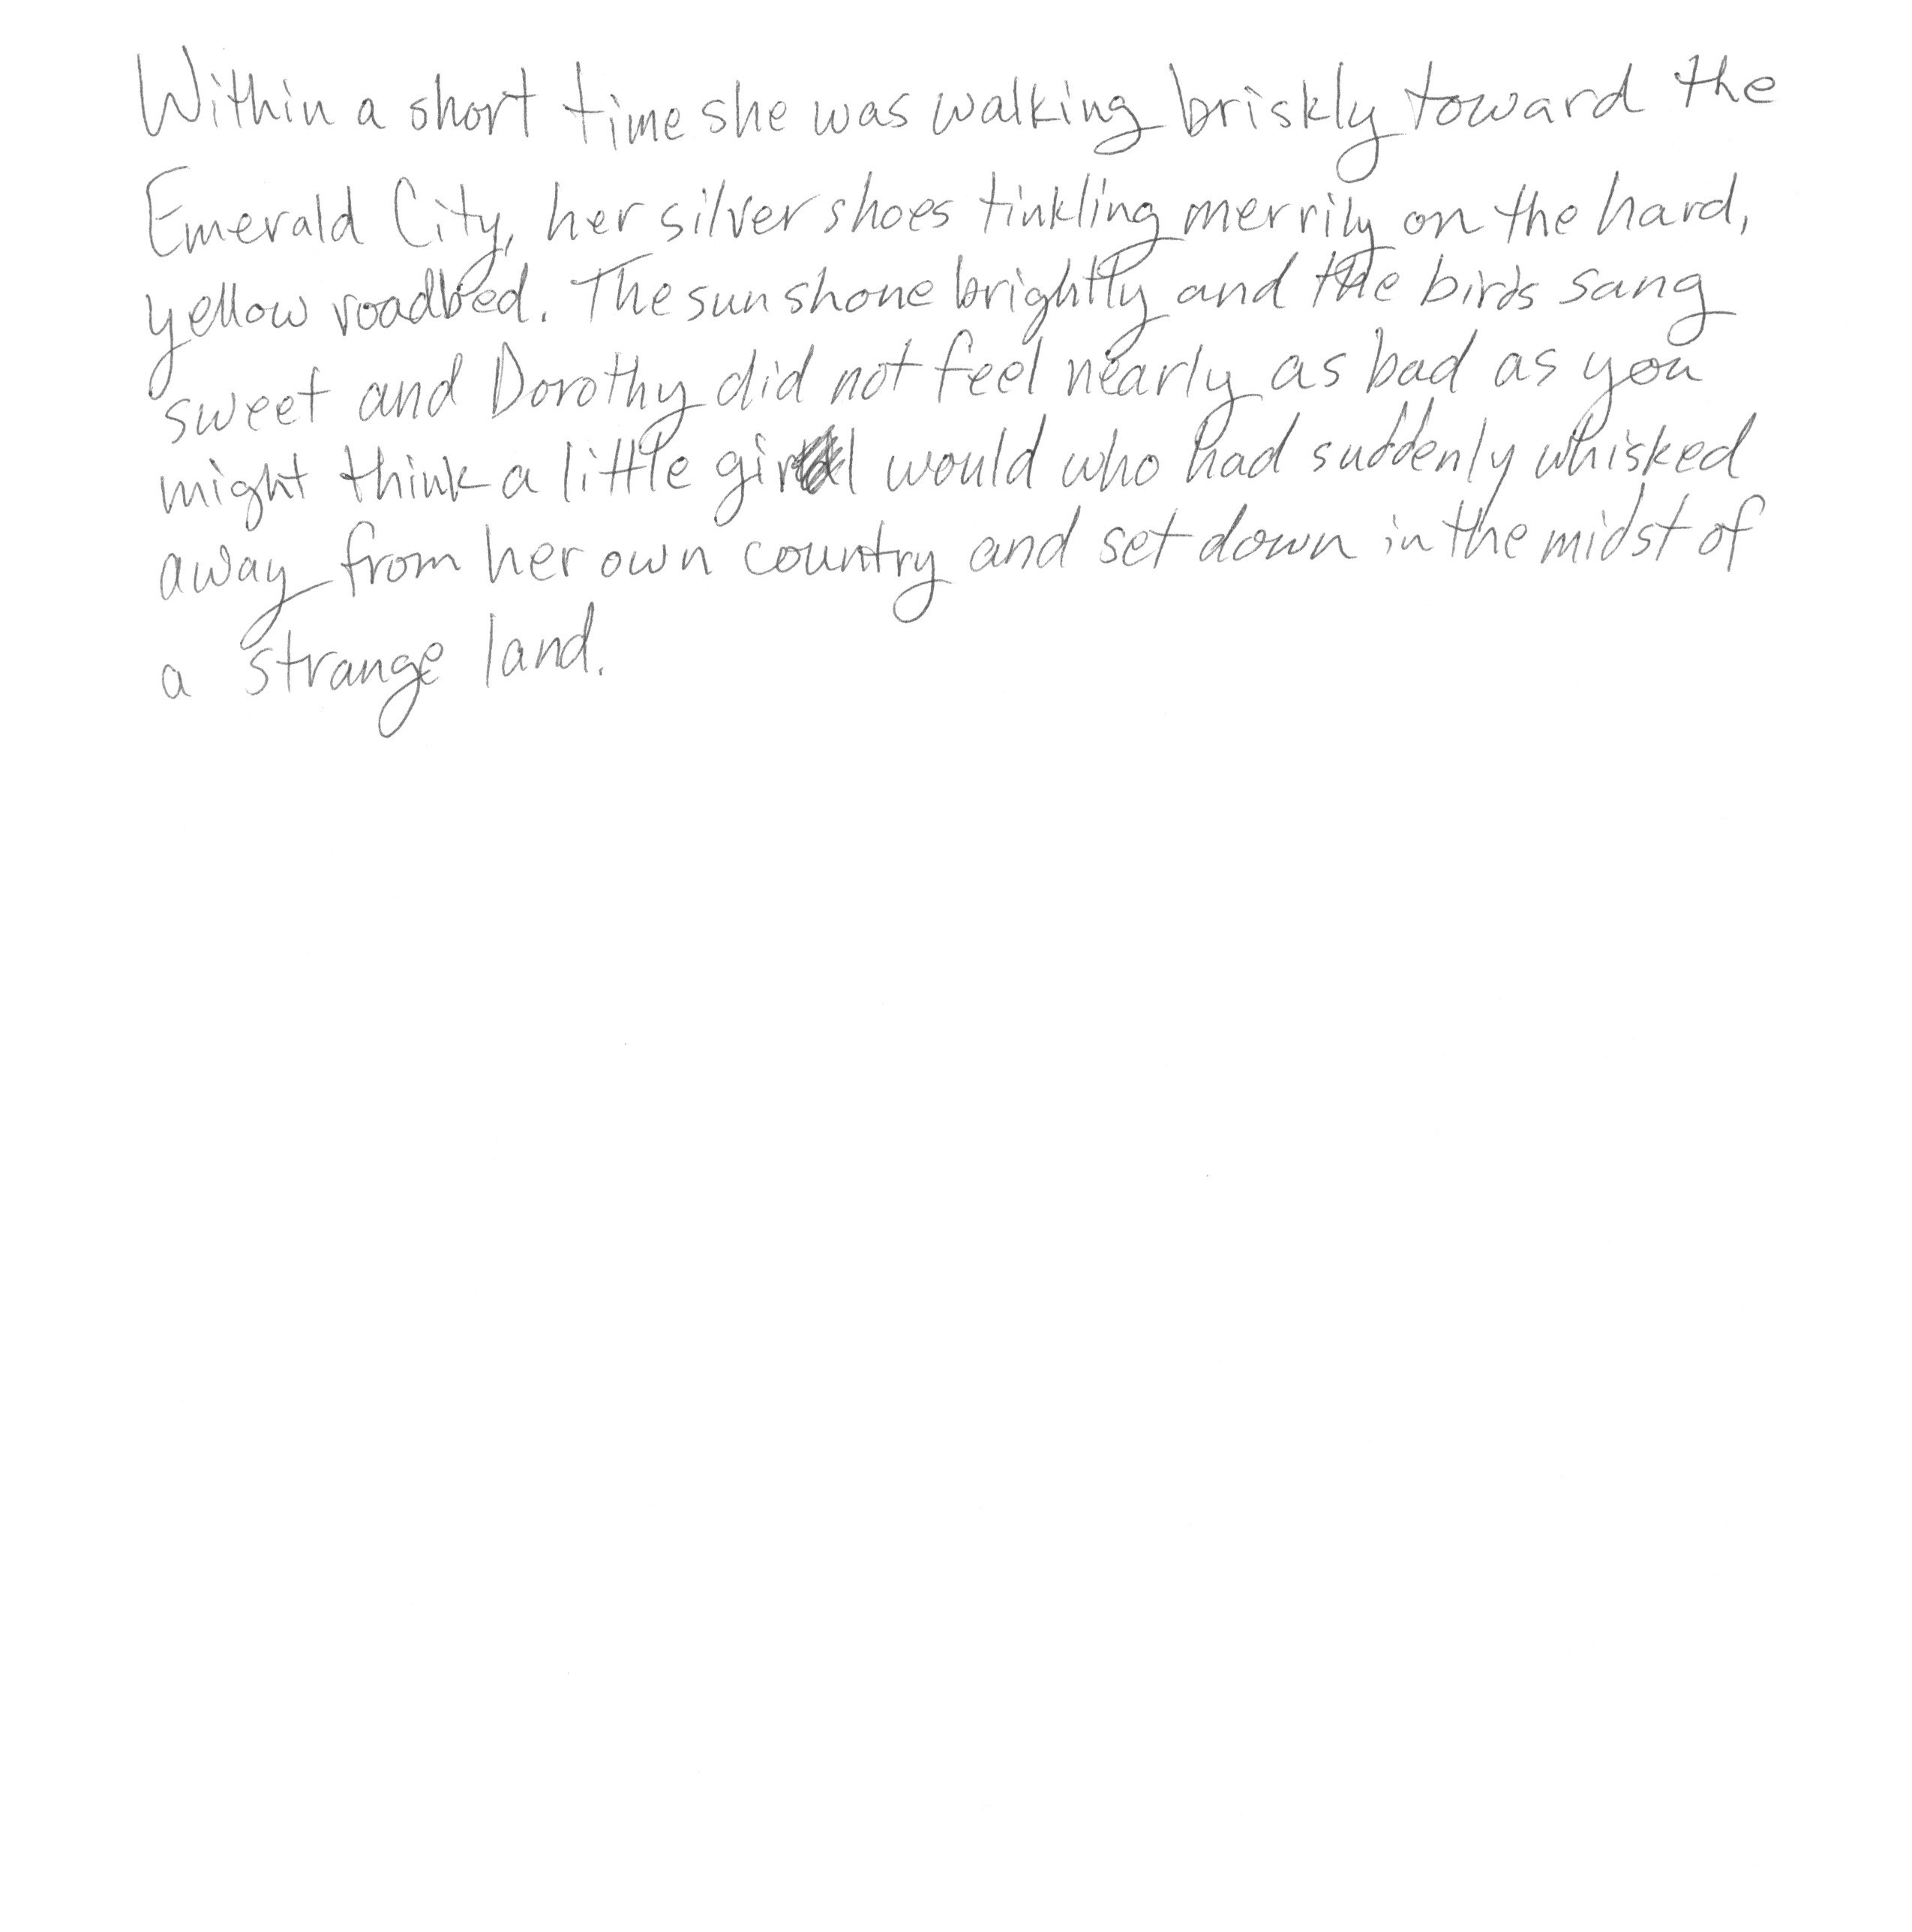 Within a short time she was walking briskly toward the
Emerald City, her silver shoes tinkling merrily on the hard,
yellow roadbed. The sun shone brightly and the birds sang
sweet and Dorothy did not feel nearly as bad as you
might think a little girl would who had suddenly whisked
away from her own country and set down in the midst of
a strange land.